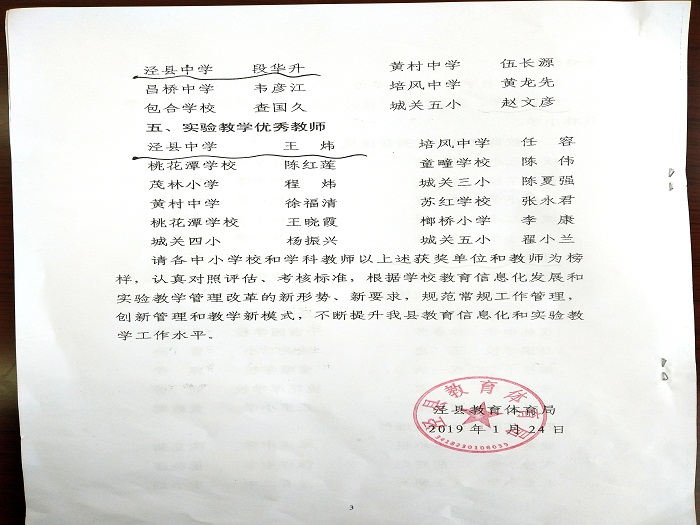 泾县中学 段华升 黄村中学 伍长源
昌桥中学 韦彦江 培风中学 黄龙先
包合学校 查国久 城关五小 赵文彦
五、实验教学优秀教师
泾县中学 王炜 培风中学 任容
桃花潭学校 陈红莲 童疃学校 陈伟
茂林小学 程炜 城关三小 陈夏强
黄村中学 徐福清 苏红学校 张永君
桃花潭学校 王晓霞 榔桥小学 李康
城关四小 杨振兴 城关五小 翟小兰
请各中小学校和学科教师以上述获奖单位和教师为榜
样，认真对照评估、考核标准，根据学校教育信息化发展和
实验教学管理改革的新形势、新要求，规范常规工作管理，
创新管理和教学新模式，不断提升我县教育信息化和实验教
学工作水平。
泾县教育体育局
泾县教育体育局
2019年1月24日
3418230106035
3